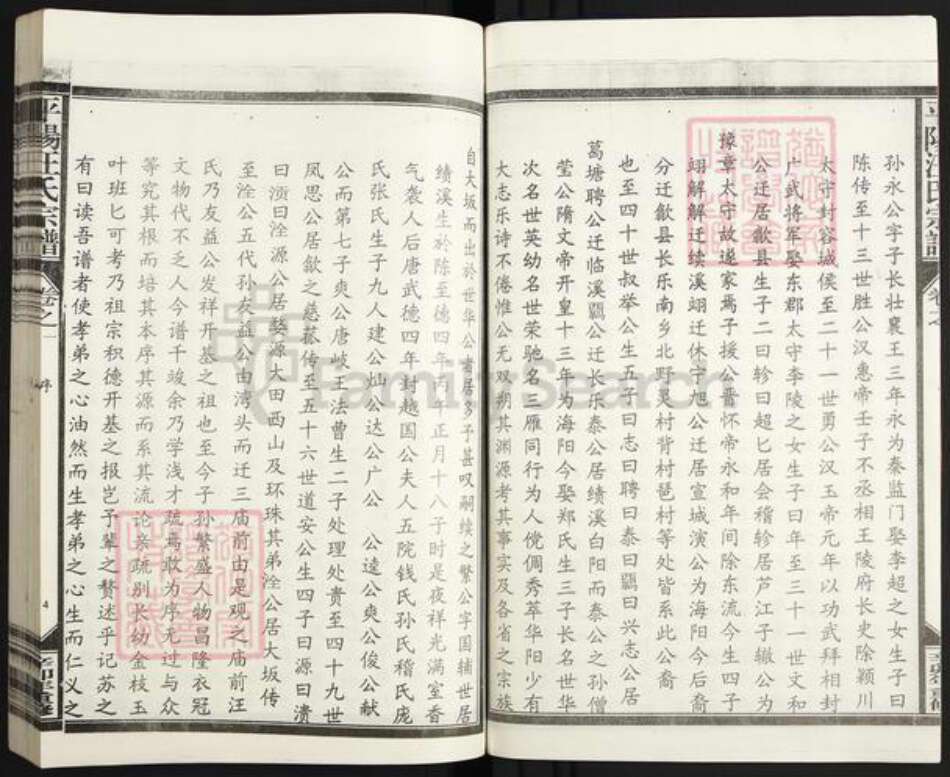 孙永公字子长壮襄王三年永为秦监门娶李超之女生子曰
陈传至十三世胜公汉惠帝壬子不丞相王陵府长史除颍川
太守封容城侯至二十一世勇公汉玉帝元年以功武拜相封
广武将军娶东郡太守李陵之女生子曰年至三十一世文和
公迁居歙县生子二曰轸曰超匕居会稽轸居芦江子辙公为
豫章太守故遂家焉子援公晋怀帝永和年间除东流今生四子
翊解解迁续溪翊迁休宁旭公迁居宣城演公为海阳令后裔
分迁歙县长乐南乡北野灵村背村琶村等处皆系此公裔
也至四十世叔举公生五子曰志曰聘曰泰曰羈曰兴志公居
葛塘聘公迁临溪羈公迁长乐泰公居绩溪白阳而泰公之孙僧
莹公隋文帝开皇十三年为海阳令娶郑氏生三子长名世华
次名世英幼名世荣驰名三雁同行为人傥倜秀萃华阳少有
大志乐诗不倦惟公无双朔其渊源考其事实及各省之宗族
自大坂而出於世华公者居多予甚叹嗣续之繁公字国辅世居
绩溪生於陈至德四年丙午正月十八子时是夜祥光满室香
气袭人后唐武德四年封越国公夫人五院钱氏孙氏稽氏庞
氏张氏生子九人建公灿公达公广公 公逵公爽公俊公献
公而第七子爽公唐岐王法曹生二子处理处贵至四十九世
凤思公居歙之慈菇传至五十六世道安公生四子曰源曰溃
曰湏曰淦源公居婺源大田西山及环珠其弟淦公居大坂传
至淦公五代孙友益公由湾头而迁三庙前由是观之庙前汪
氏乃友益公发祥开基之祖也至今子孙繁盛人物昌隆衣冠
文物代不乏人今谱干竣余乃学浅才疏焉敢为序无过与众
等究其根而培其本序其源而系其流论亲疏别长幼金枝玉
叶班匕可考乃祖宗积德开基之报岂予辈之赘述乎记苏之
有曰读吾谱者使孝弟之心油然而生孝弟之心生而仁义之
平陽汪氏宗譜
卷之一
序
4